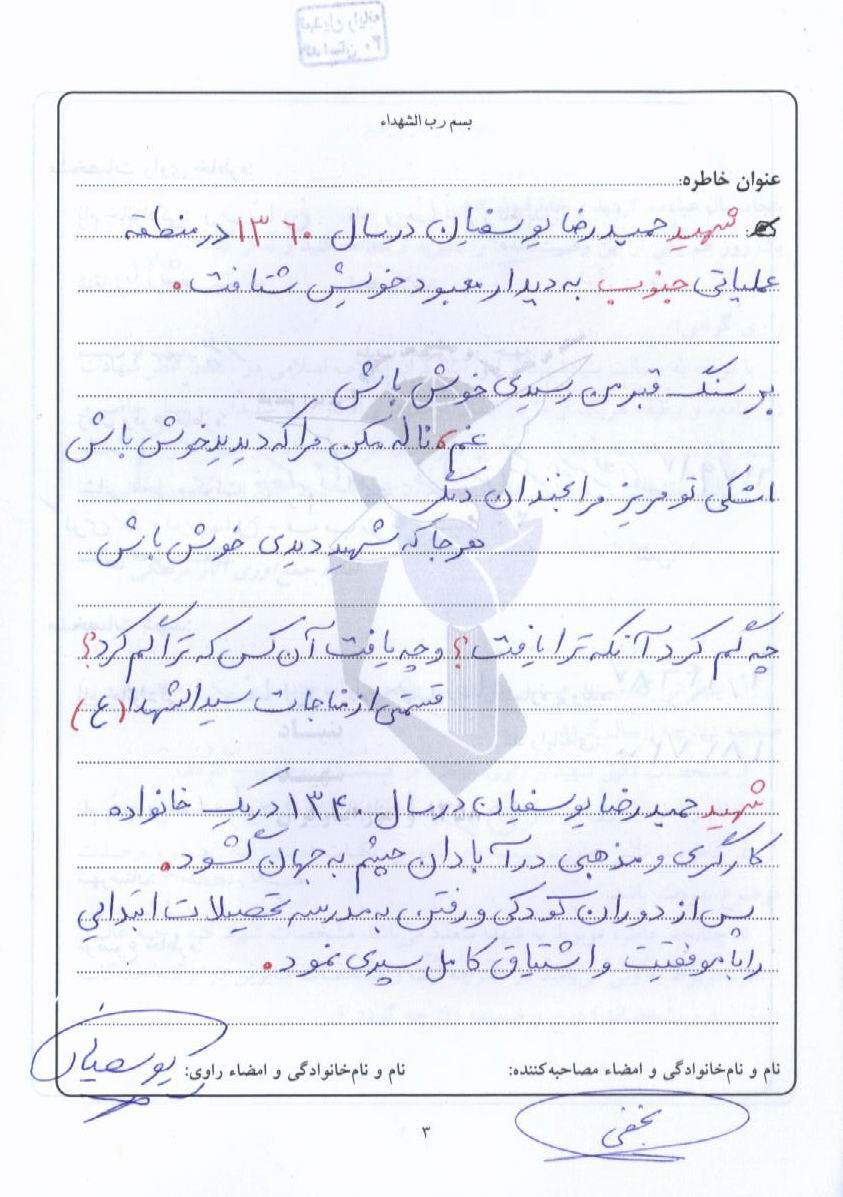 بسم رب الشهداء
عنوان خاطره:
شهید حمیدرضا یوسفیان در سال ۱۳۶۰ در منطقه
عملیاتی جنوب به دیدار معبود خویش شتافت.
بر سنگ قبر من رسیدی خوش باش
غم، ناله مکن مرا که دیدید خوش باش
اشکی تو مریز مرا بخندان دیگر
هر جا که شهید دیدی خوش باش
چه گم کرد آنکه ترا یافت؟ و چه یافت آن کس که ترا گم کرد؟
قسمتی از مناجات سیدالشهدا (ع)
شهید حمیدرضا یوسفیان در سال ۱۳۴۰ در یک خانواده
کارگری و مذهبی در آبادان چشم به جهان گشود.
پس از دوران کودکی و رفتن به مدرسه تحصیلات ابتدایی
را با موفقیت و اشتیاق کامل سپری نمود.
نام و نام‌خانوادگی و امضاء مصاحبه‌کننده:
نجفی
نام و نام‌خانوادگی و امضاء راوی:
یوسفیان
۳